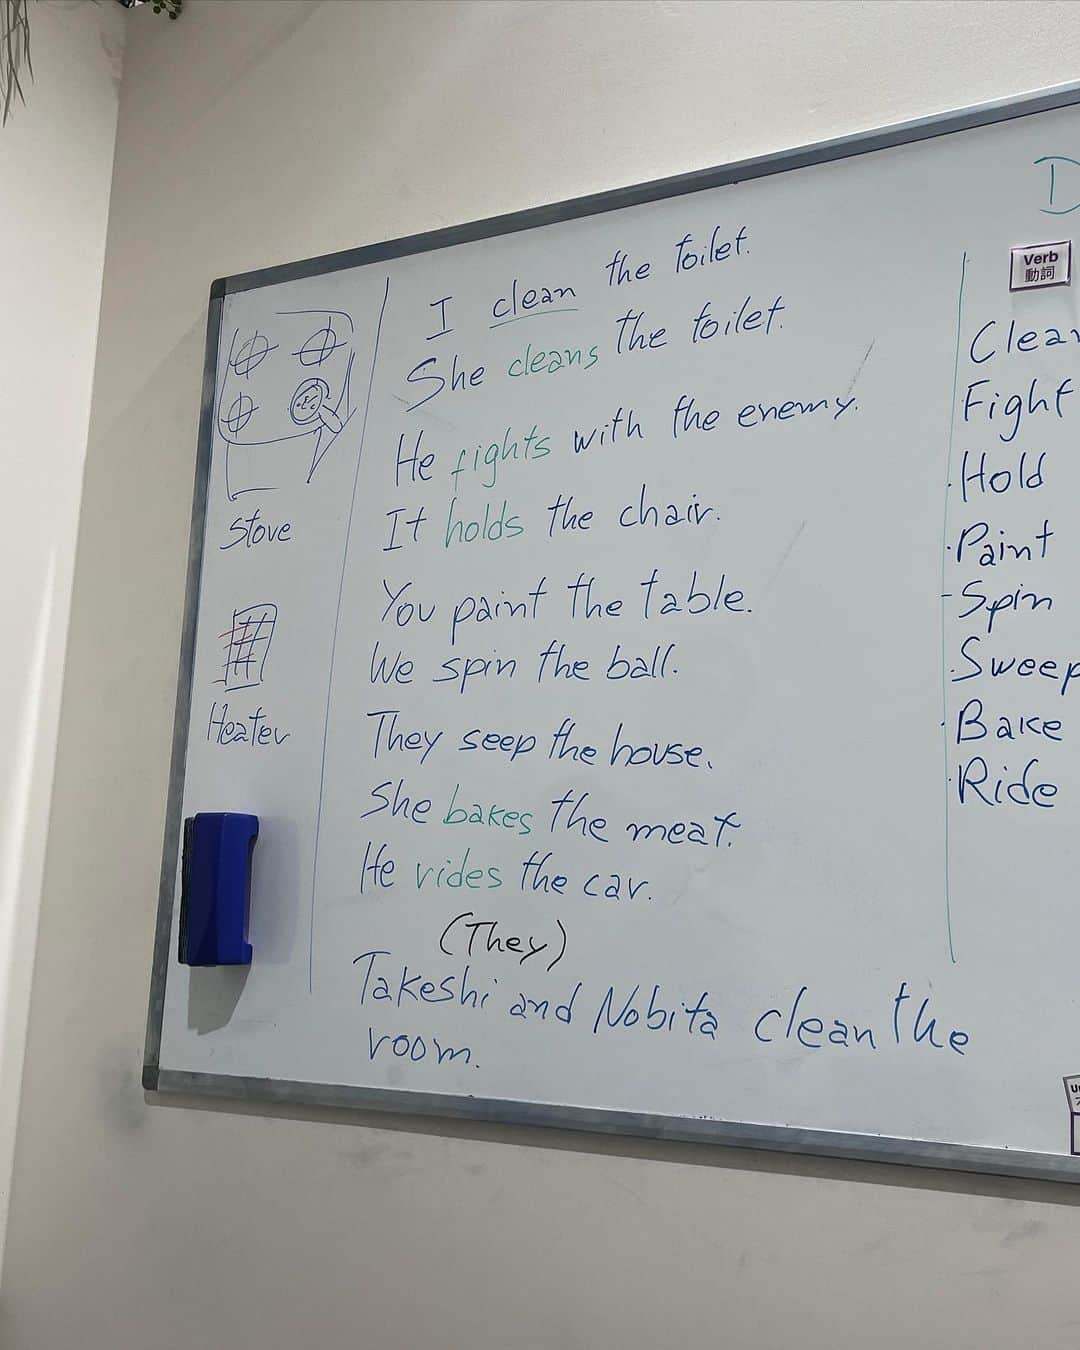 I clean the toilet.
She cleans the toilet.
He fights with the enemy.
It holds the chair.
You paint the table.
We spin the ball.
They seep the house.
She bakes the meat.
He rides the car.
(They)
Takeshi and Nobita clean the
room.
Stove
Heater
D
Verb
動詞
Clean
Fight
Hold
Paint
Spin
Sweep
Bake
Ride